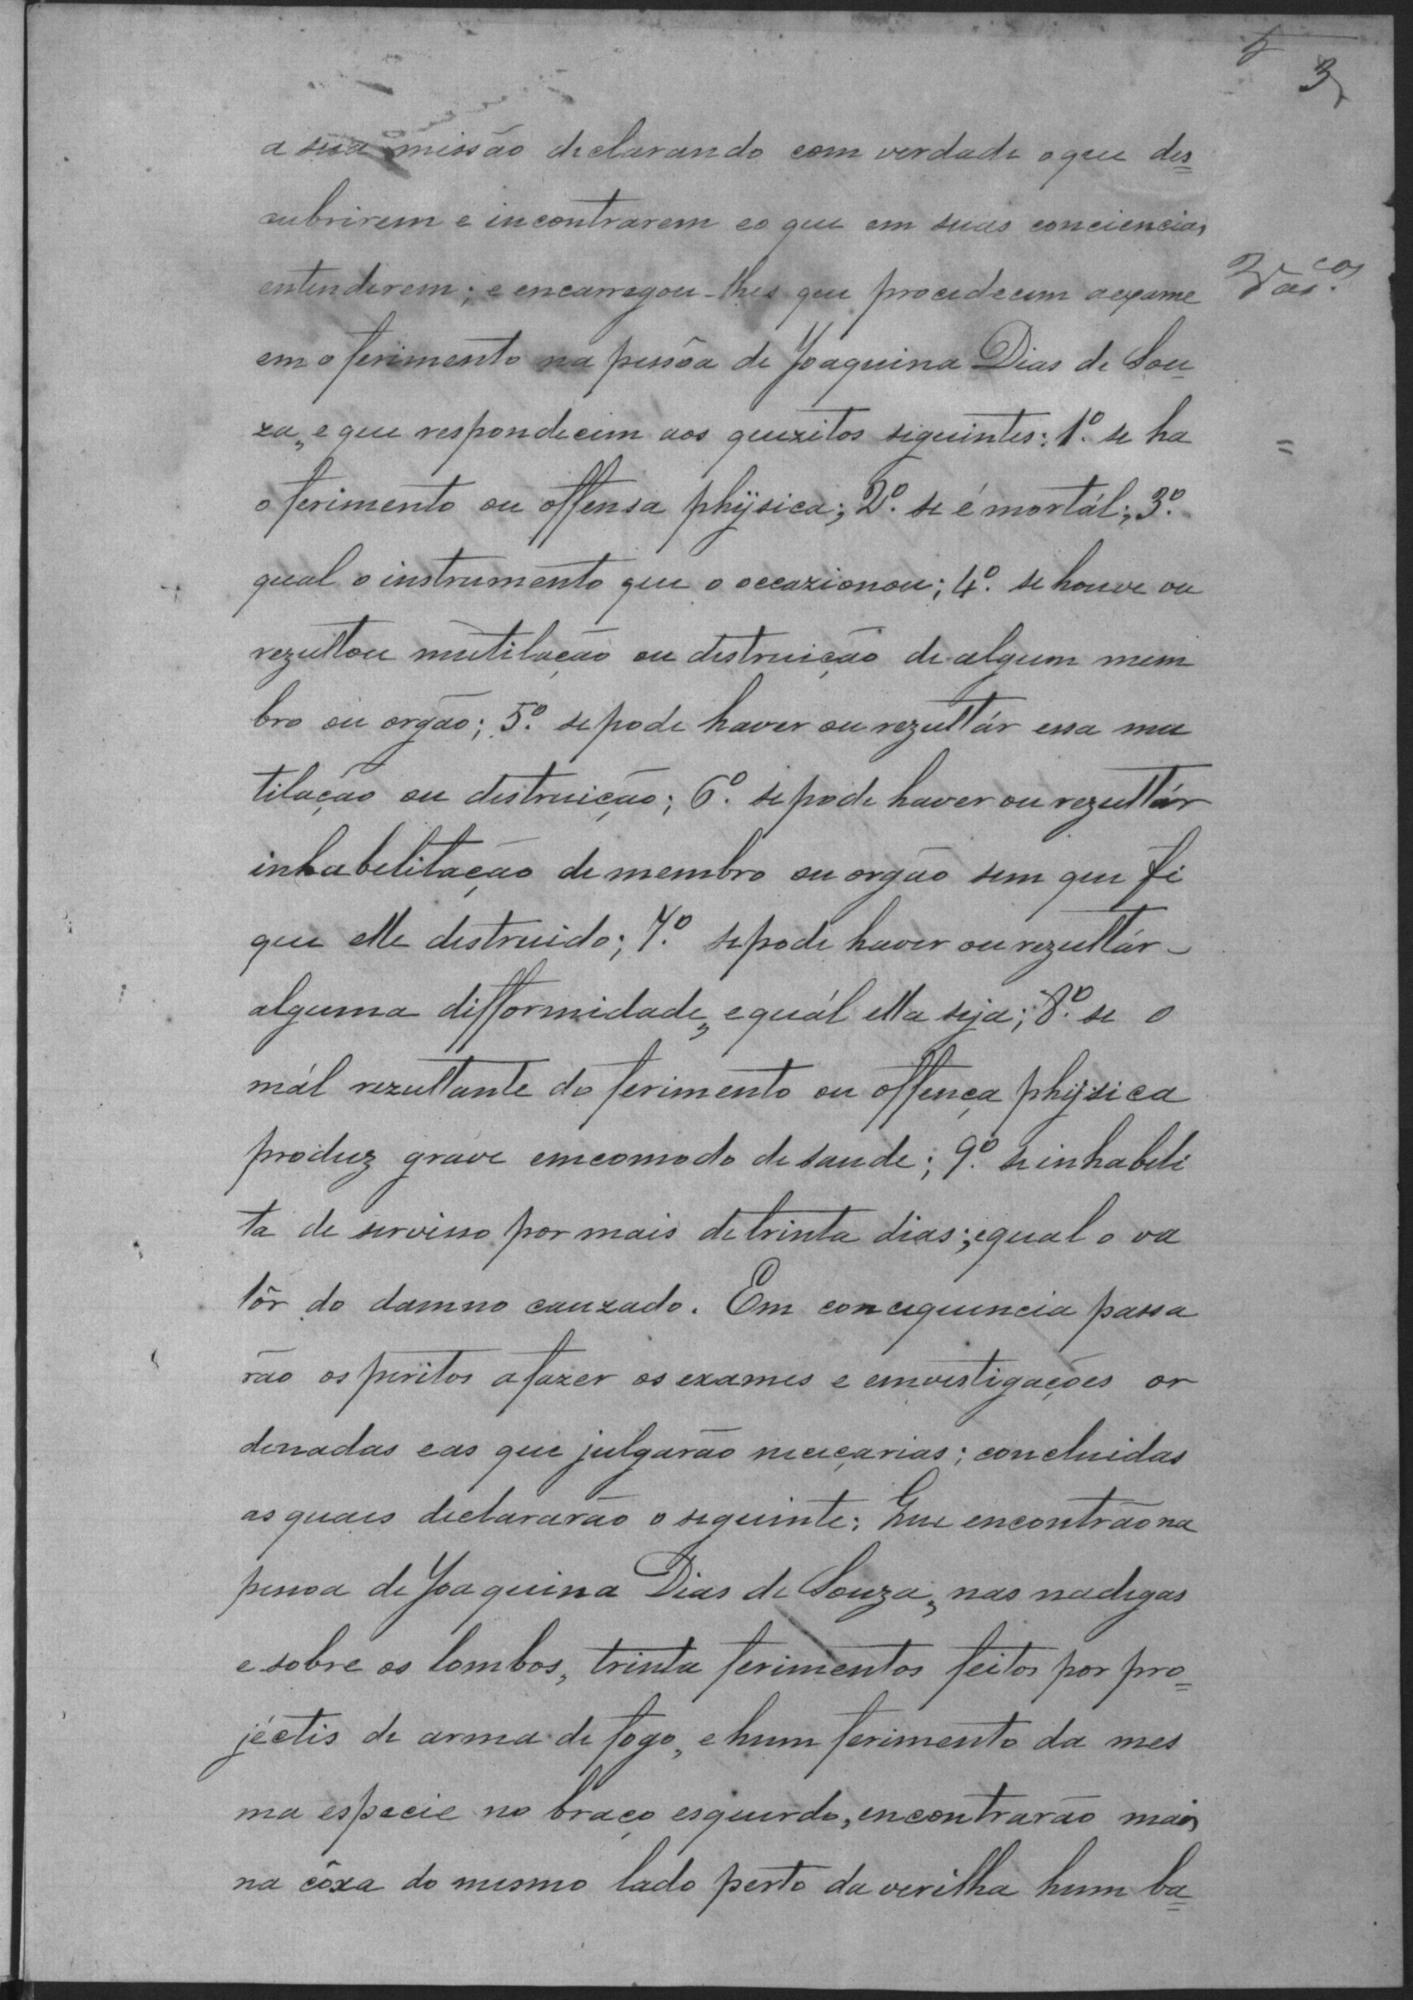 3
a sua missão declarando com verdade o que des=
cubrirem e incontrarem eo que em suas conciencias
entenderem; e encarregou-lhes que procedecem aexame
em o ferimento na pessôa de Joaquina Dias de Sou
za, e que respondecem aos quezitos siguintes: 1º. se ha
o ferimento ou offensa physica; 2º. se é mortál; 3º.
qual o instrumento que o occazionou; 4º. se houve ou
rezultou mutilação ou destruição de algum mem
bro ou orgão; 5º. se pode haver ou rezultár essa mu
tilação ou destruição; 6º. se pode haver ou rezultár
inhabelitação de membro ou orgão sem que fi
que elle destruido; 7º. se pode haver ou rezultár
alguma difformidade, e quál ella seja; 8º. se o
mál rezultante do ferimento ou offença physica
produz grave emcomodo de saude; 9º. se inhabeli
ta de serviso por mais de trinta dias; equal o va
lôr do damno cauzado. Em conciquencia passa
rão os peritos a fazer os exames e emvestigações or
denadas eas que julgarão neceçarias; concluidas
as quaes declararão o seguinte: Que encontrão na
pessoa de Joaquina Dias de Souza, nas nadegas
e sobre os lombos, trinta ferimentos feitos por pro=
jéctis de arma de fogo, e hum ferimento da mes
ma especie no braço esquerdo, encontrarão mais
na côxa do mesmo lado perto da verilha hum ba=